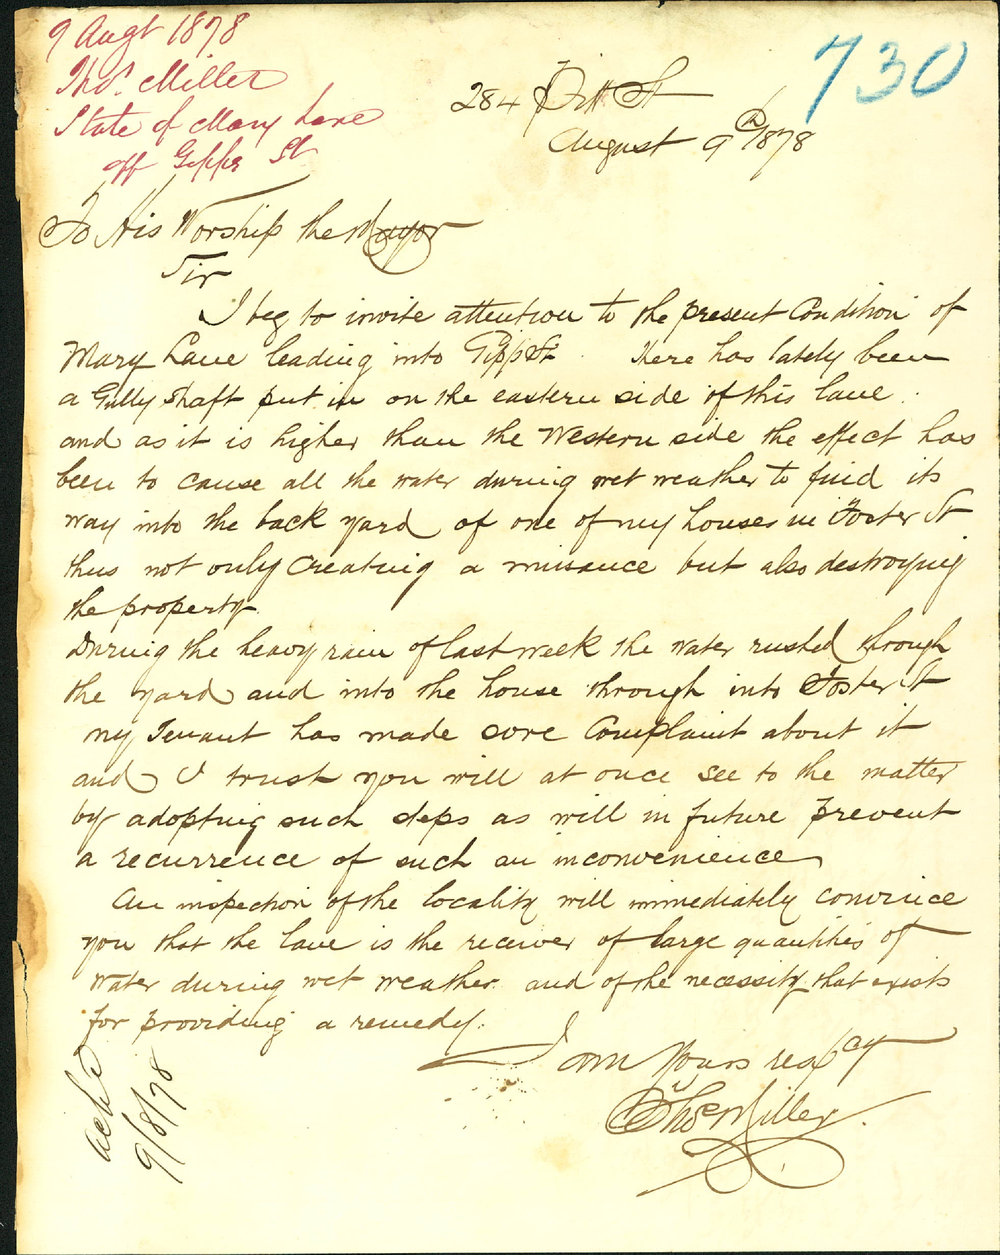 9 Augt 1878
Thos. Miller
State of Mary Lane
off Gipps St
730
284 Pitt St
August 9th 1878
To His Worship the Mayor
Sir
I beg to invite attention to the present Condition of
Mary Lane leading into Gipps St. There has lately been
a Gully Shaft put in on the eastern side of this lane.
and as it is higher than the Western side the effect has
been to cause all the water during wet weather to find its
way into the back yard of one of my houses in Foster St
thus not only Creating a nuisance but also destroying
the property.
During the heavy rain of last week the water rushed through
the yard and into the house through into Foster St
my Tenant has made sore Complaint about it
and I trust you will at once see to the matter
by adopting such steps as will in future prevent
a recurrence of such an inconvenience
An inspection of the locality will immediately convince
you that the lane is the receiver of large quantities of
water during wet weather and of the necessity that exists
for providing a remedy.
I am Yours respcy
Thos Miller
ackd
9/8/78